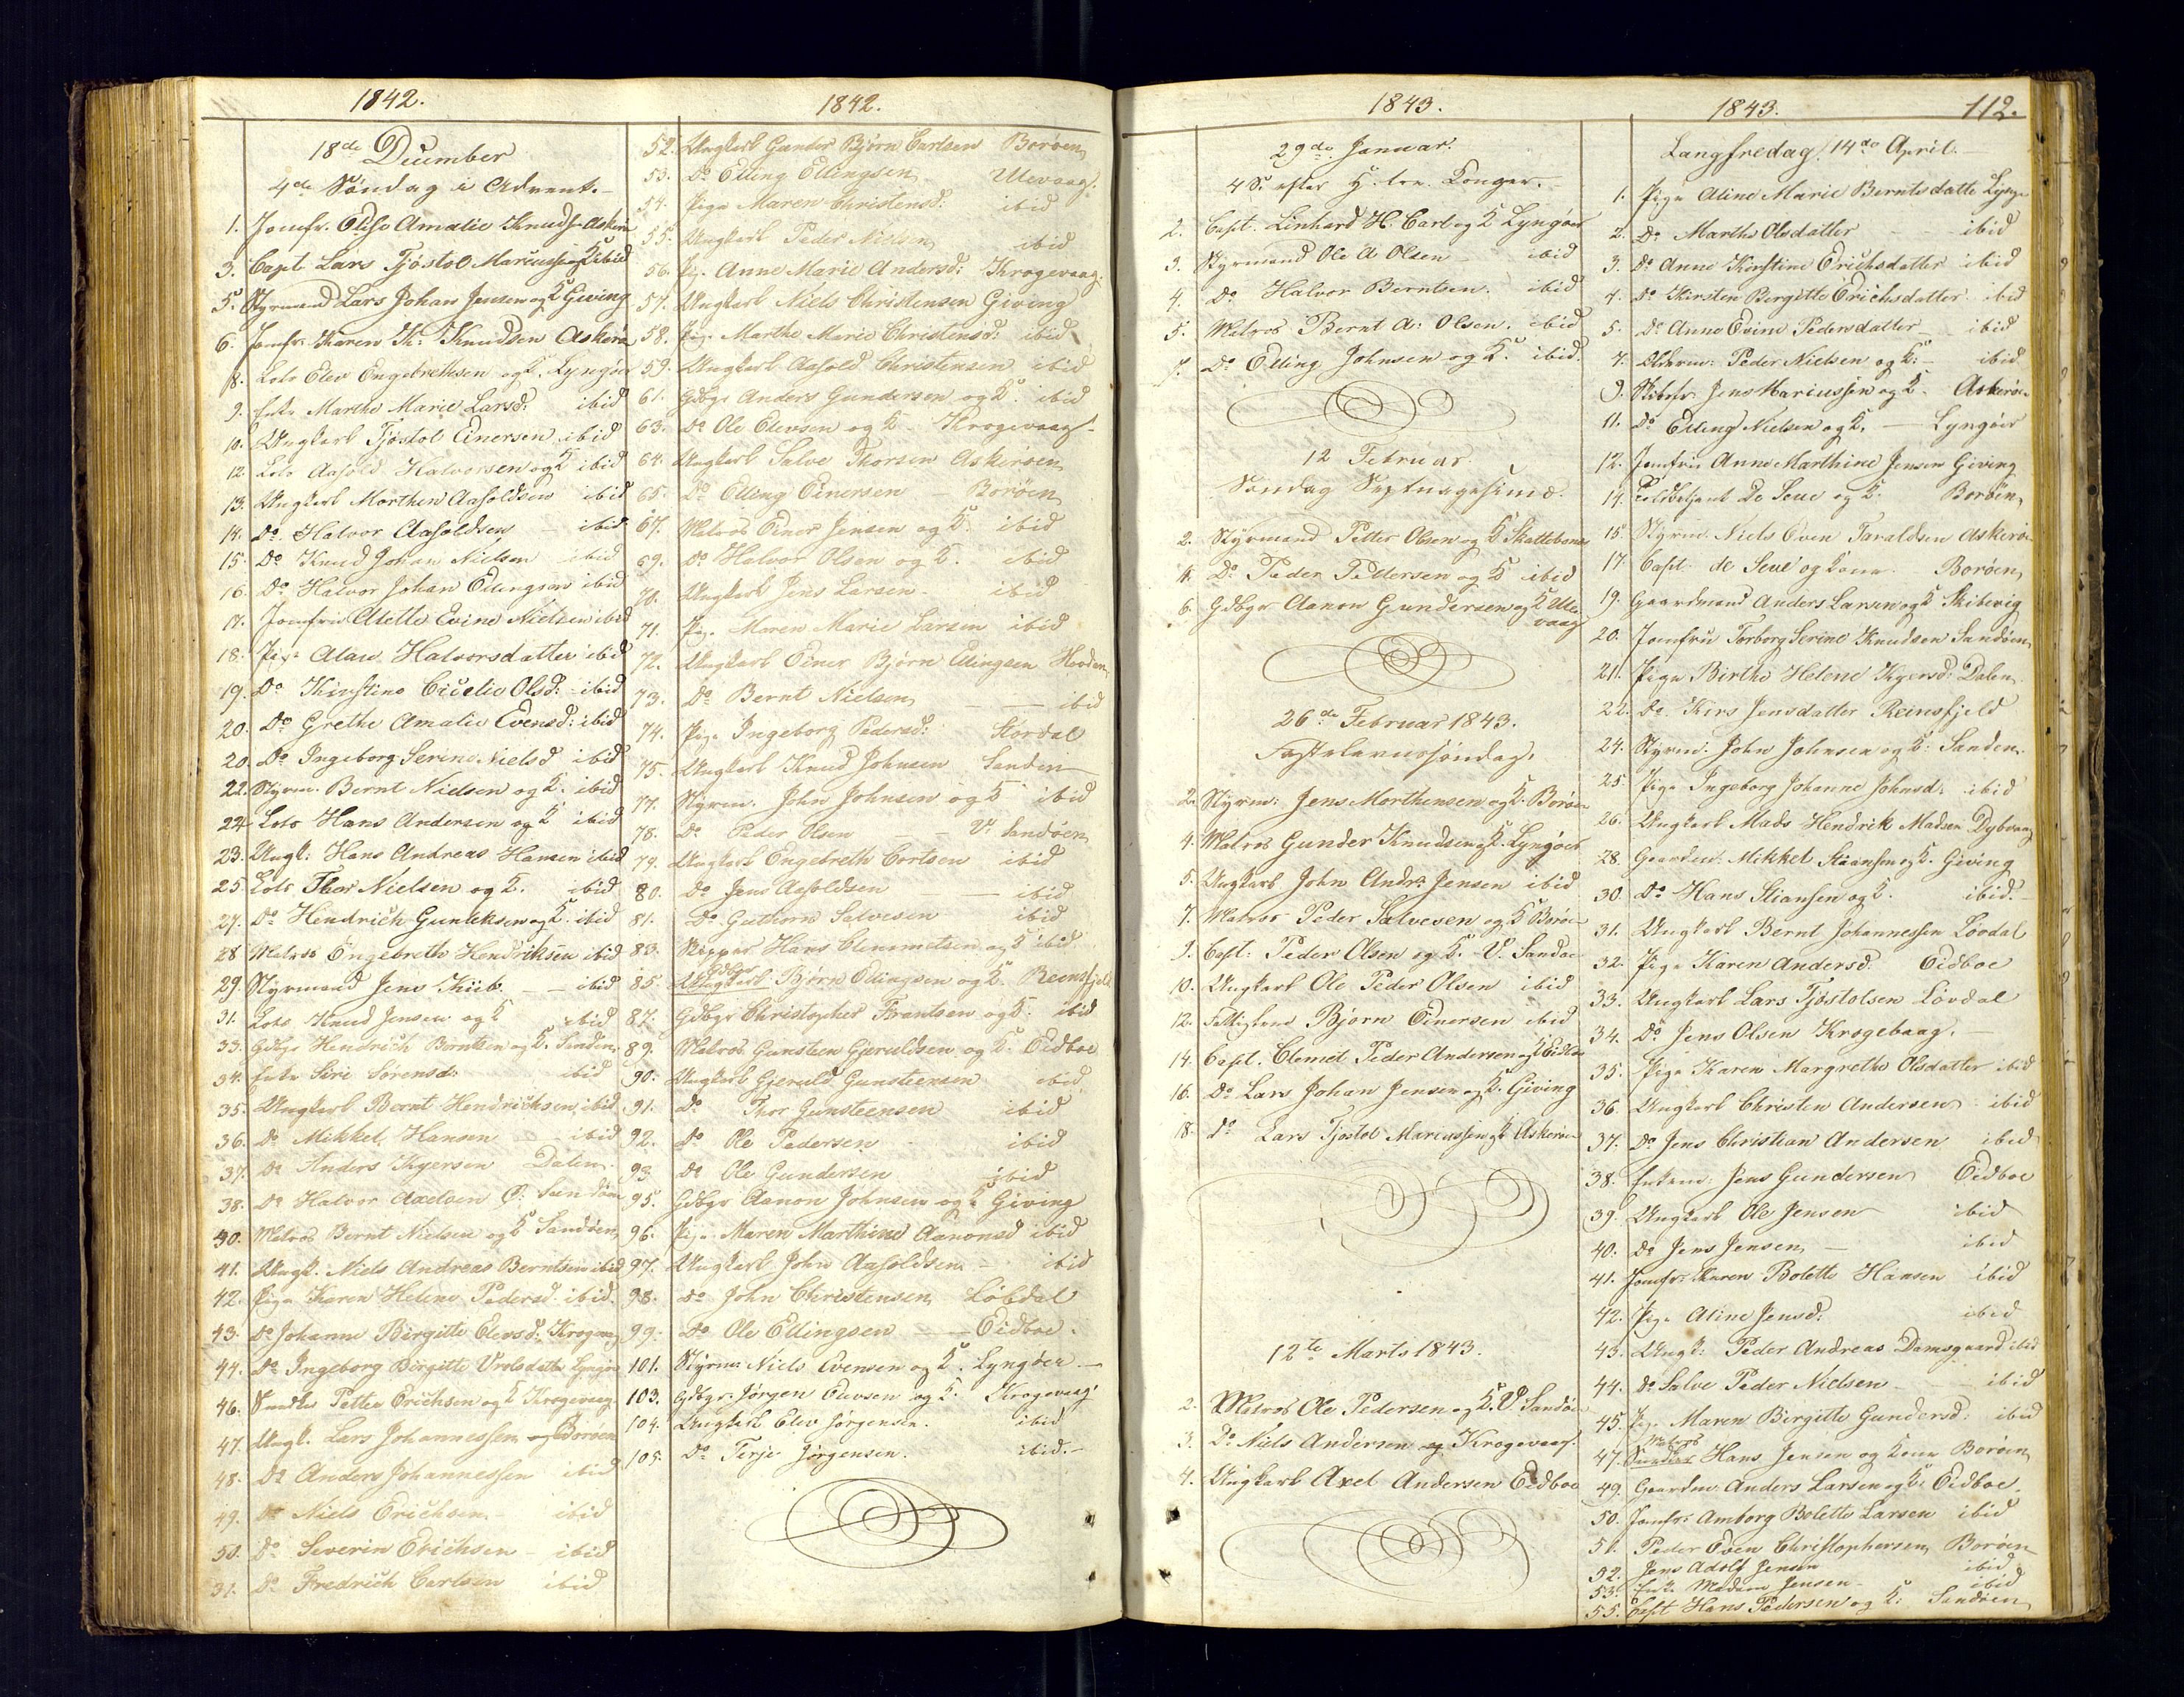 1842.
18de December
4de Søndag i Advent.
1. Jomfr. Elise Amalie Knuds. Askerø
3. Capt Lars Tjøstol Marcussen og K ibid
5. Styrmand Lars Johan Jensen og K Giving
6. Jomfr. Karen Kn: Knudsen Askerø
8. Lods Elev Engebrethsen og K. Lyngøer
9. Enke Marthe Marie Larsd: ibid
10. Ungkarl Tjøstol Einersen ibid
12. Lods Aasold Halvorsen og K ibid
13. Ungkarl Morthen Aasoldsen ibid
14. Do Halvor Aasoldsen ibid
15. Do Knud Johan Nielsen ibid
16. Do Halvor Johan Ellingsen ibid
17. Jomfru Alette Evine Nielsen ibid
18. Pige Halvorsdatter ibid
19. Do Kirstine Cicelie Olsd: ibid
20. Do Grethe Amalie Evensd: ibid
20. Do Ingeborg Serine Nielsd ibid
22. Styrm. Bernt Nielsen og K. ibid
24. Lods Hans Andersen og K ibid
23. Ungk: Hans Andreas Hansen ibid
25. Lods Thor Nielsen og K. ibid
27. Do Hendrich Gunleksen og K. ibid
28 Matros Engebreth Hendriksen ibid
29. Styrmand Jens Kiib. ibid
31. Lods Knud Jensen og K ibid
33. Gdbgr Hendrich Berntsen og K. Sanden
34. Enke Siri Sørensd: ibid
35. Ungkarl Bernt Hendrichsen ibid
36. Do Mikkel Hansen ibid
37. Do Anders Kgersen Dalen.
38. Do Halvor Axelsen Ø: Sandøen
40. Matros Bernt Nielsen og K Sandøen
41. Ungk. Niels Andreas Berntsen ibid
42. Pige Karen Helene Pedersd. ibid.
43. Do Johanne Birgitte Elevsd: Krogevaag
44. Do Ingeborg Birgitte datter Lyngøer
46. Petter Erichsen og K Krogevaag
47. Ungk. Lars Johannessen Borøen
48. Do Anders Johannessen ibid
49. Do Niels Erichsen ibid
50. Do Severin Erichsen ibid
51. Do Fredrich Carlsen ibid
1842.
52. Ungkarl Gunder Bjørn Carlsen Borøen
53. Do Elling Ellingsen Ulevaag.
54. Pige Maren Christensd: ibid
55. Ungkarl Peder Nielsen ibid
56. Pi. Anne Marie Andersd: Krogevaag.
57. Ungkarl Niels Christensen Giving
58. Pig. Marthe Marie Christensd: ibid
59. Ungkarl Aasold Christensen ibid
61. Gdbgr Anders Gundersen og K. ibid
63. Do Ole Elevsen og K Krogevaag
64. Ungkarl Salve Thorsen Askerøen
65. Do Elling Einersen Borøen
67. Matros Einer Jensen og K. ibid
69. Do Halvor Olsen og K. ibid
70. Ungkarl Jens Larsen ibid
71. Pig. Maren Marie Larsen ibid
72. Ungkarl Einer Bjørn Ellingsen
73. Do Bernt Nielsen ibid
74. Pige Ingeborg Pedersd: Stordal
75. Ungkarl Knud Johnsen Sanden
77. Styrm. John Johnsen og K ibid
78. Do Peder Olsen V. Sandøen
79. Ungkarl Engebreth Cortsen ibid
80. Do Jens Aasoldsen ibid
81. Do Guthorm Salvesen ibid
83. Skipper Hans Clemmetsen og K ibid
85. Gdbgr Ungkarl Bjørn Ellingsen og K. Reinsfjeld
87. Gdbgr Christopher Frantsen og K. ibid
89. Matros Gunsteen Gjeruldsen og K. Eidboe
90. Ungkarl Gjeruld Gunsteensen ibid
91. Do Thor Gunsteensen ibid
92. Do Ole Pedersen ibid
93 Do Ole Gundersen ibid
95. Gdbgr Aanon Johnsen og K Giving
96. Pige Maren Marthine Aanonsd ibid
97. Ungkarl John Aasoldsen ibid
98. Do John Christensen Løbdal
99. Do Ole Ellingsen Eidboe.
101. Styrm: Niels Evensen og K. Lyngøer
103. Gdbgr. Jørgen Elevsen og K. Krogevaag
104. Ungkarl Elev Jørgensen. ibid
105. Do Terje Jørgensen. ibid.
1843.
29de Januar.
4 S. efter H. tre. Konger.
2. Capt. Linhard H. Carl og K Lyngøer
3. Styrmand Ole A Olsen ibid
4. Do Halvor Berntsen. ibid
5. Matros Bernt A: Olsen. ibid
7. Do Elling Johnsen og K. ibid.
12 Februar
Søndag Septuagesima.
2. Styrmand Petter Olsen og K
4. Do Peder Pettersen og K ibid
6. Gdbgr Aanon Gundersen og K Ulevaag
26de Februar 1843.
Fastelavnssøndag.
2. Styrm: Jens Morthensen og K. Borøen
4. Matros Gunder Knudsen og K. Lyngøer
5. Ungkarl John Andr: Jensen ibid
7. Matros Peder Salvesen og K Borøen
9. Capt: Peder Olsen og K. V. Sandøe
10. Ungkarl Ole Peder Olsen ibid
12. Bjørn Einersen ibid
14. Capt. Clemet Peder Andersen og K Eidboe
16. Do Lars Johan Jensen og K. Giving
18. Do Lars Tjøstol Marcussen og K Askerøen
12te Marts 1843.
2. Matros Ole Pedersen og K. V. Sandøe
3. Do Niels Andersen Krogevaag.
4. Ungkarl Axel Andersen Eidboe
1843. 112.
Langfredag. 14de April.
1. Pige Aline Marie Berntsdatter Lyngø
2. Do Marthe Olsdatter ibid
3. Do Anne Kirstine Erichsdatter ibid
4. Do Kirsten Birgitte Erichsdatter ibid
5. Do Anne Evine Pedersdatter ibid
7. Olderm: Peder Nielsen og K: ibid
9. Skibsfr: Jens Marcussen og K. Askerøe
11. Do Elling Nielsen og K. Lyngøer
12. Jomfru Anne Marthine Jensen Giving
14. Toldbetjent De Seue og K. Borøen
15. Styrm. Niels Even Taraldsen Askerøe
17. Capt. de Seue og kone Borøen
19. Gaardmand Anders Larsen og K Skibevig
20. Jomfru Torborg Serine Knudsen Sandøen
21. Pige Birthe Helene Kgersd: Dalen
22. Do Kirs Jensdatter Reinsfjeld
24. Styrm. John Johnsen og K: Sanden
25. Pige Ingeborg Johanne Johnsd: ibid
26. Ungkarl Mads Hendrik Madsen Dybvaag
28. Gaardm. Mikkel Stiansen og K. Giving
30. Do Hans Stiansen og K. ibid.
31. Ungkarl Bernt Johannessen Løvdal
32. Pige Karen Andersd. Eidboe
33. Ungkarl Lars Tjøstolsen Løvdal
34. Do Jens Olsen Krogebaag.
35. Pige Karen Margrethe Olsdatter ibid
36. Ungkarl Christen Andersen ibid
37. Do Jens Christian Andersen ibid
38. Enkem: Jens Gundersen Eidboe
39. Ungkarl Ole Jensen ibid
40. Do Jens Jensen ibid
41. Jomfr: Karen Bolette Hansen ibid
42. Pige Aline Jensd. ibid
43. Ungk: Peder Andreas Damsgaard ibid
44. Do Salve Peder Nielsen ibid
45. Pige Maren Birgitte Gundersd: ibid
47. Matros Hans Jensen og kone Borøen
49. Gaardm: Anders Larsen og K: Eidboe.
50. Jomfr: Amborg Bolette Larsen ibid
51. Peder Even Christophersen Borøen
52. Jens Adolf Jensen ibid
53. Enke Madam Jensen ibid
55. Capt Hans Pedersen og K: Sandøen